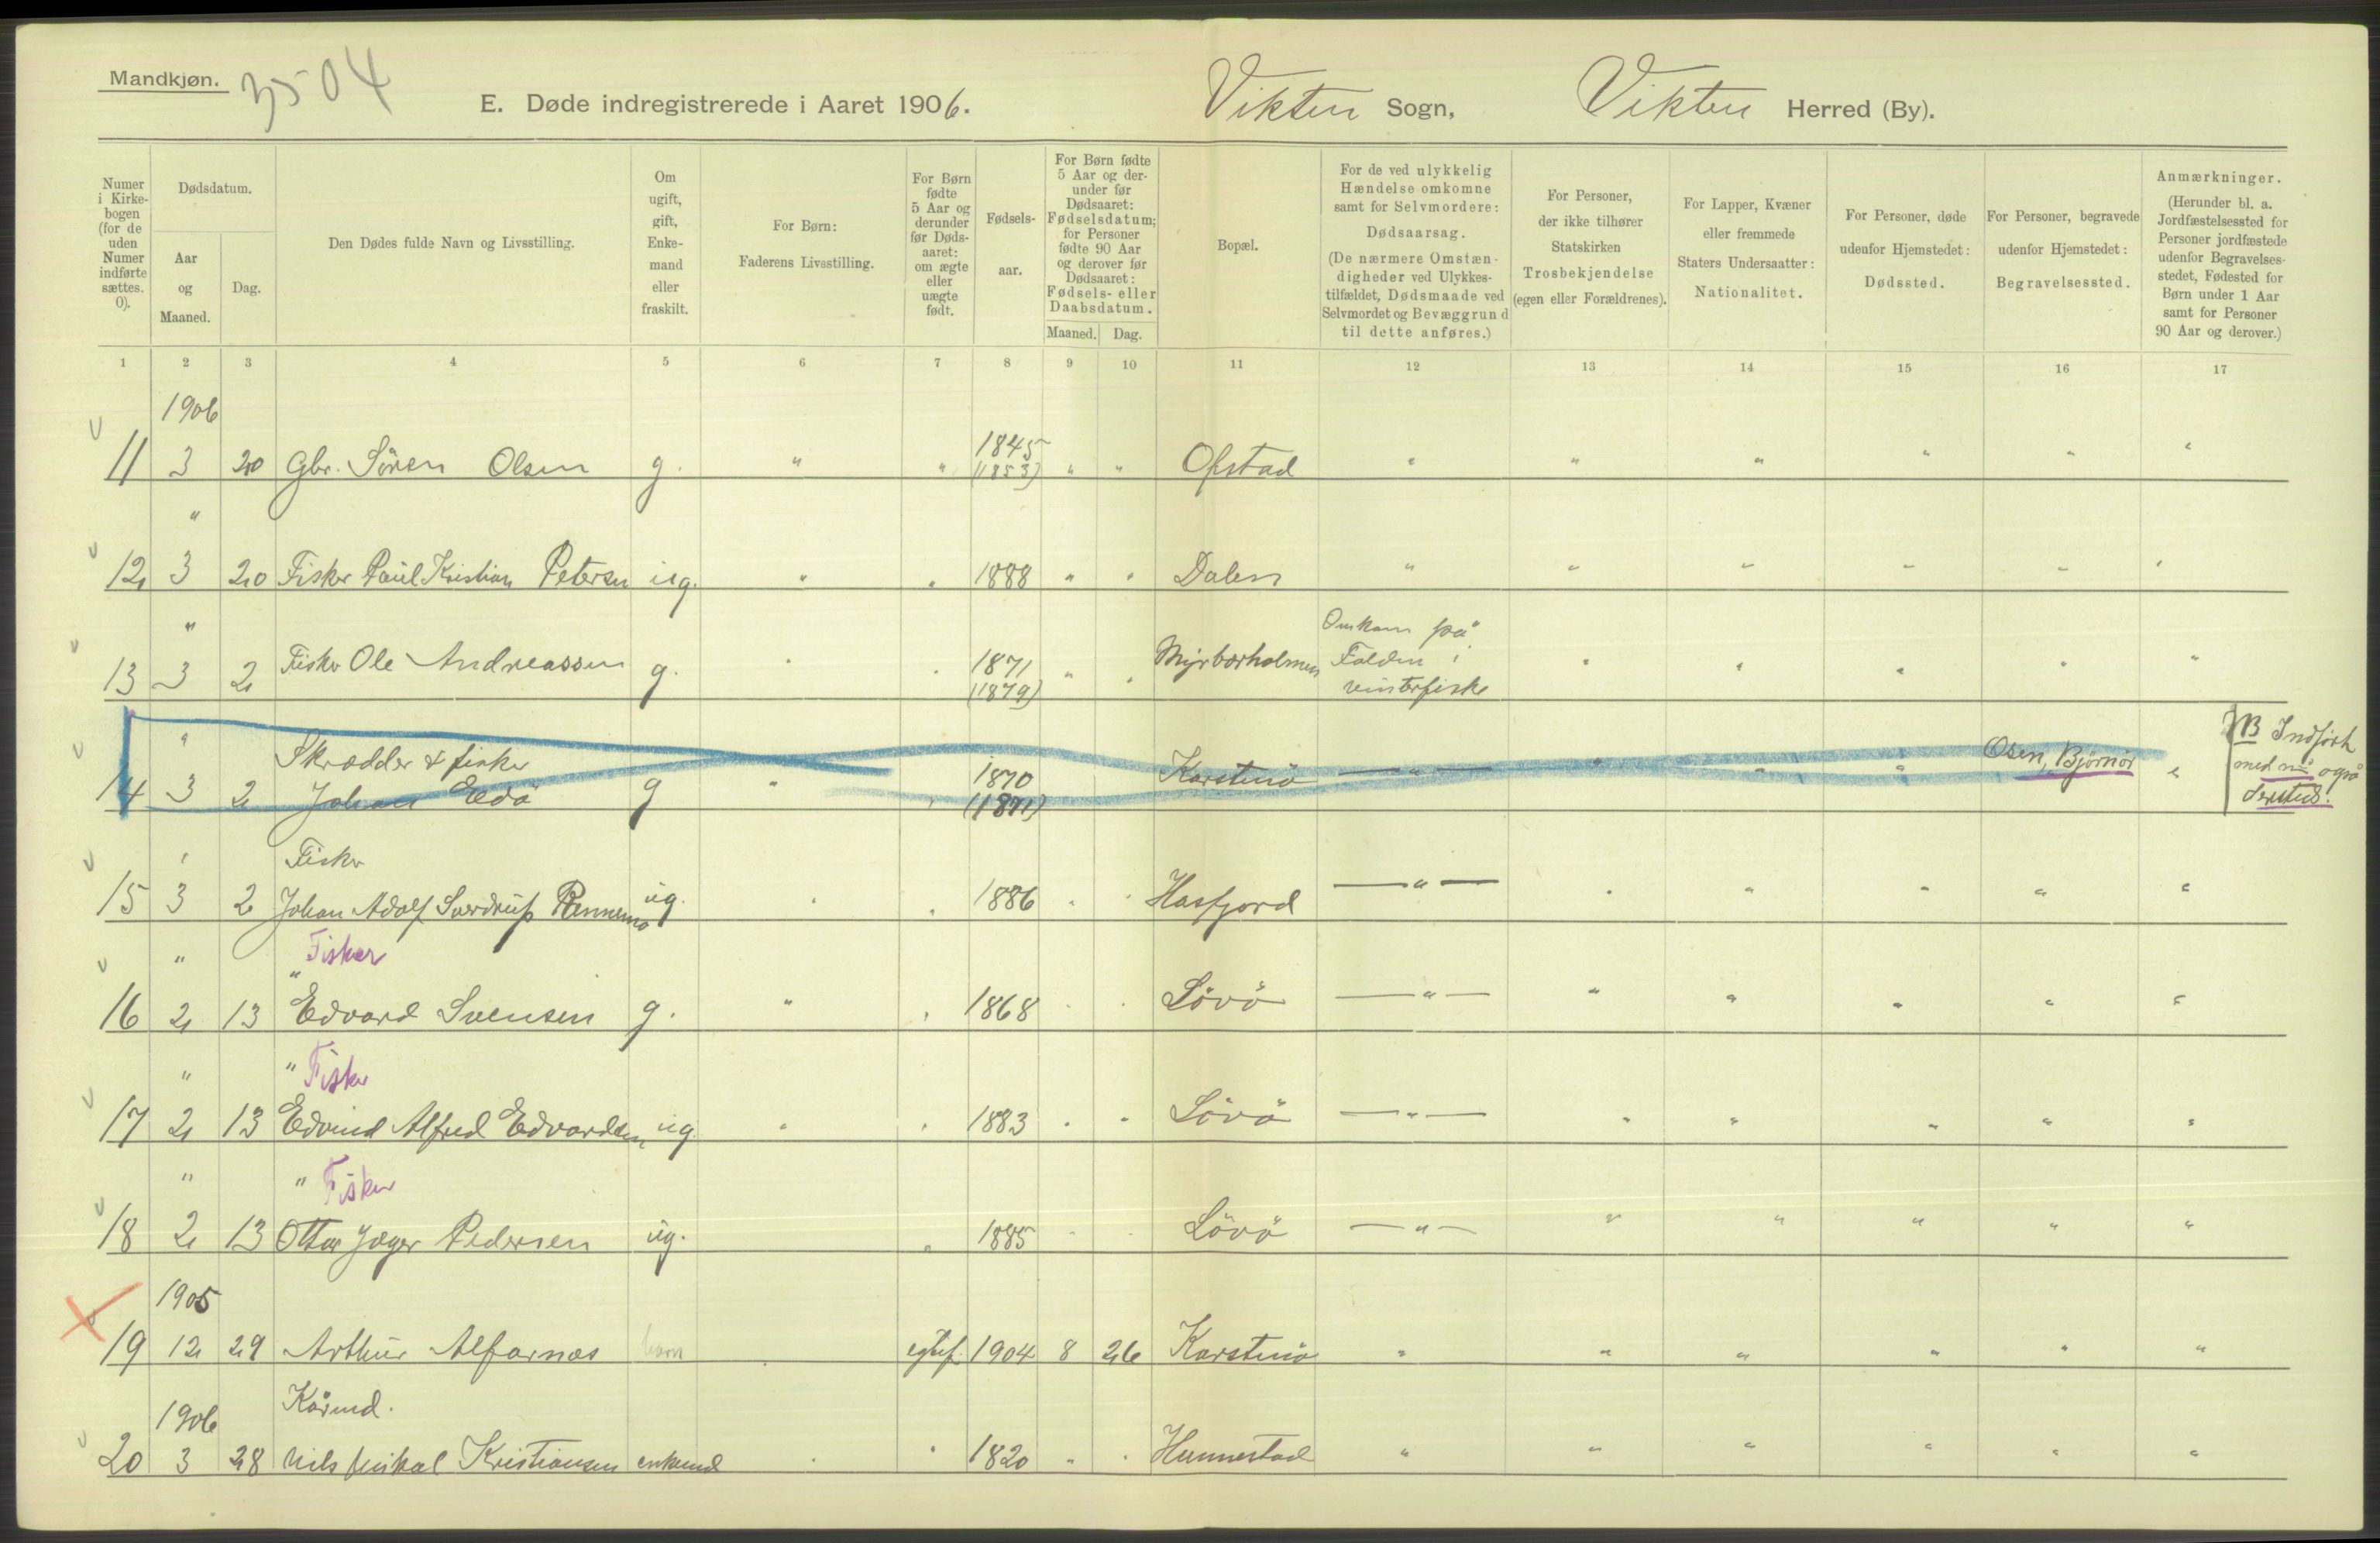 Mandkjøn.
3504
E. Døde indregistrerede i Aaret 1906. Vikten Sogn, Vikten Herred (By).
Numer i Kirke-bogen (for de uden Numer indførte sættes. 0).
Dødsdatum.
Aar og Maaned.
Dag.
Den Dødes fulde Navn og Livsstilling.
Om ugift, gift, Enke-mand eller fraskilt.
For Børn: Faderens Livsstilling.
For Børn fødte 5 Aar og derunder før Døds-aaret: om ægte eller uægte født.
Fødsels-aar.
For Børn fødte 5 Aar og der-under før Dødsaaret: Fødselsdatum; for Personer fødte 90 Aar og derover før Dødsaaret: Fødsels- eller Daabsdatum.
Maaned. Dag.
Bopæl.
For de ved ulykkelig Hændelse omkomne samt for Selvmordere: Dødsaarsag. (De nærmere Omstæn-digheder ved Ulykkes-tilfældet, Dødsmaade ved Selvmordet og Bevæggrund til dette anføres.)
For Personer, der ikke tilhører Statskirken Trosbekjendelse (egen eller Forældrenes).
For Lapper, Kvæner eller fremmede Staters Undersaatter: Nationalitet.
For Personer, døde udenfor Hjemstedet: Dødssted.
For Personer, begravede udenfor Hjemstedet: Begravelsessted.
Anmærkninger. (Herunder bl. a. Jordfæstelsessted for Personer jordfæstede udenfor Begravelses-stedet, Fødested for Børn under 1 Aar samt for Personer 90 Aar og derover.)
1 2 3 4 5 6 7 8 9 10 11 12 13 14 15 16 17
1906
11 3 20 Gbr. Sören Olsen g. " " 1845 (1853) " " Ofstad " " " " " "
"
12 3 20 Fisker Paul Kristian Petersen ug. " " 1888 " " Dalen " " " " " "
"
13 3 2 Fisker Ole Andreassen g. " " 1871 (1879) " " Omkom på Folden i vinterfiske " " " " "
"
Skrædder & fisker
14 3 2 Johan Edö g " " 1870 (1871) Karstenö — " — " " " Osen, Björnör "
NB Indført med også dersteds.
" Fisker
15 3 2 Johan Adolf Sverdrup ug. " " 1886 " " Hasfjord — " — " " " " "
" Fisker
16 2 13 Edvard Svensen g. " " 1868 " " Lövö — " — " " " " "
" " Fisker
17 2 13 Edvind Alfred Edvardsen ug " " 1883 " " Lövö — " — " " " " "
" " Fisker
18 2 13 Ottar Jæger Pedersen ug. " 1885 " " Lövö — " — " " " " "
1905
19 12 29 Arthur Alfarnæs barn egtef. 1904 8 26 Karstenö " " " " " "
1906 Kårmd.
20 3 28 Nils Mikal Kristiansen enkemd " " 1820 " " Hunnestad " " " " " "